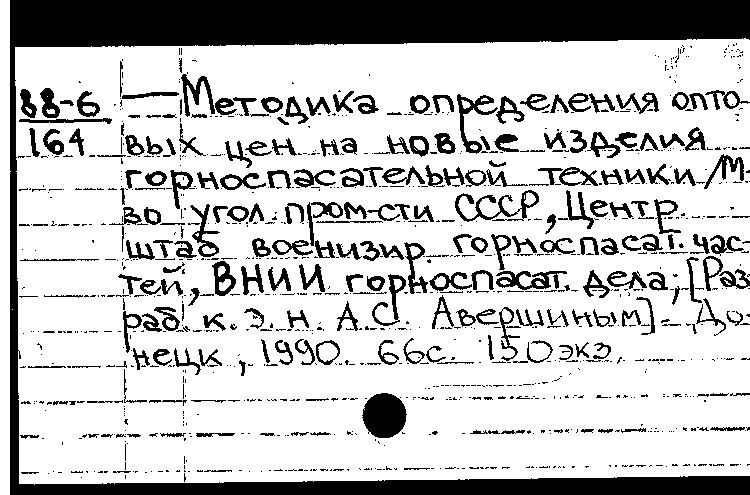 88-6 — Методика определения опто-
164 вых цен на новые изделия
горноспасательной техники/М-
во угол. пром-сти СССР, Центр.
штаб военизир. горноспасат. час-
тей, ВНИИ горноспасат. дела; [Раз-
раб. к. э. н. А.С. Авершиным].- До-
нецк, 1990. 66с. 150экз.